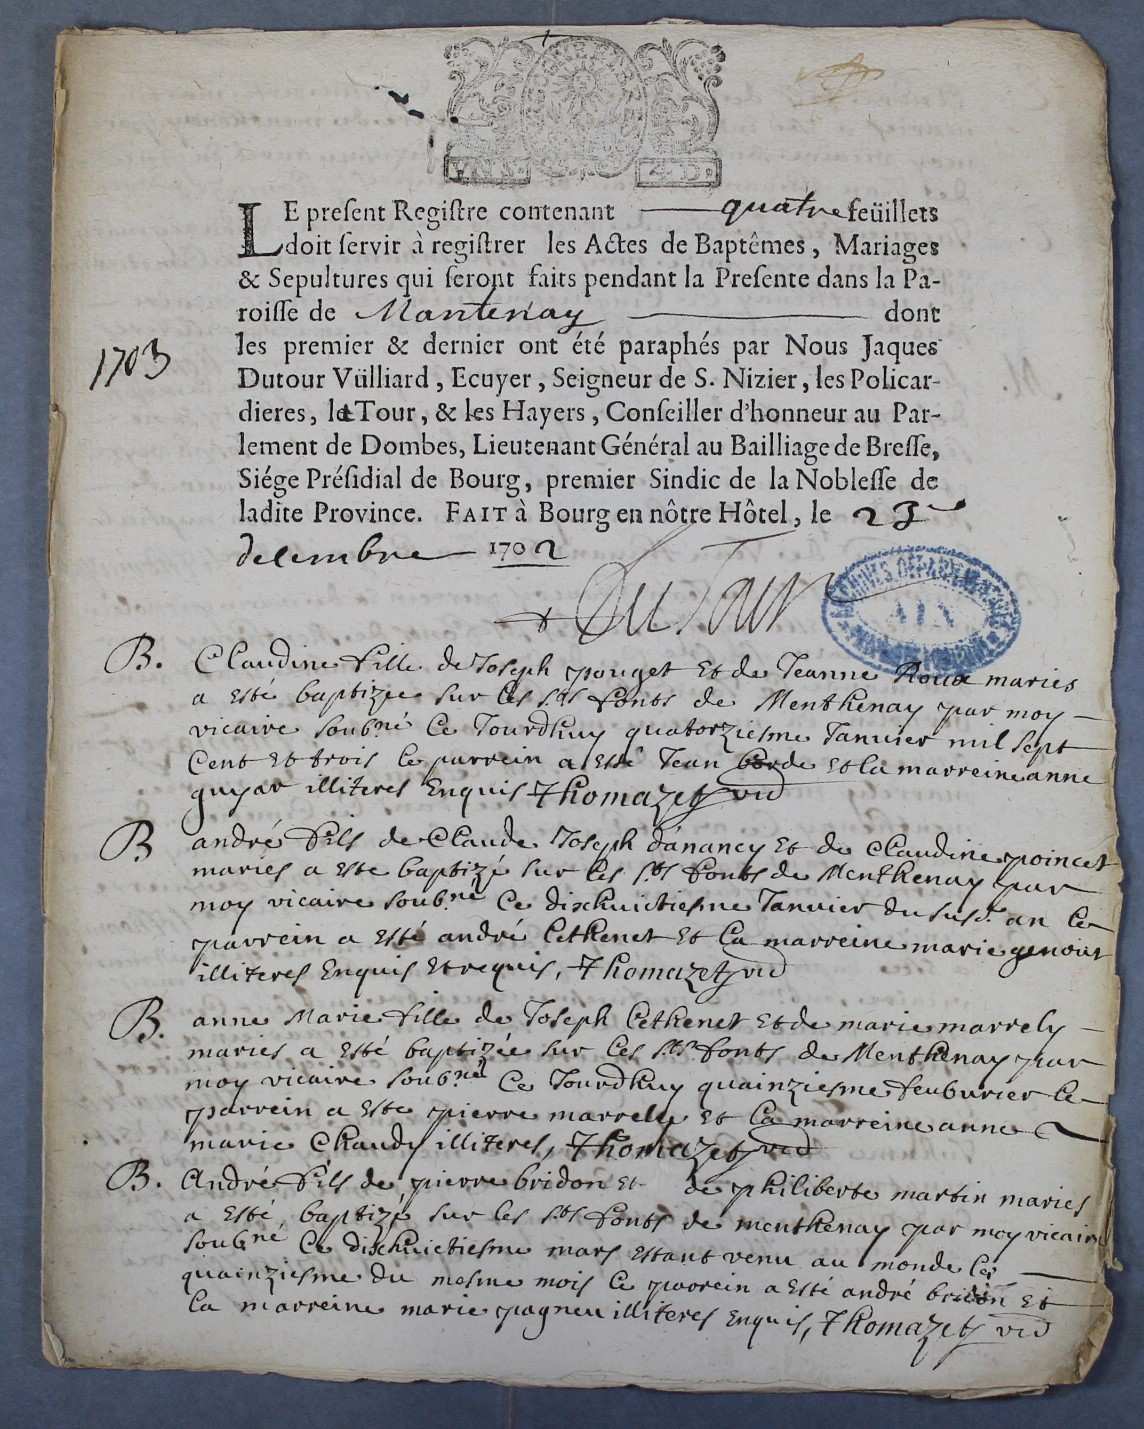 LE preſent Regiſtre contenant quatre feüillets
doit ſervir à regiſtrer les Actes de Baptêmes, Mariages
& Sepultures qui ſeront faits pendant la Preſente dans la Pa-
roiſſe de Mantenay dont
1703
les premier & dernier ont été paraphés par Nous Jaques
Dutour Vülliard, Ecuyer, Seigneur de S. Nizier, les Policar-
dieres, la Tour, & les Hayers, Conſeiller d'honneur au Par-
lement de Dombes, Lieutenant Général au Bailliage de Breſſe,
Siége Préſidial de Bourg, premier Sindic de la Nobleſſe de
ladite Province. FAIT à Bourg en nôtre Hôtel, le 23
decembre 1702
DuTour
ARCHIVES DEPARTEMENTALES
AIN
B. Claudine fille de Joseph pouget Et de Jeanne Roux mariés
a esté baptizée sur les sts fonts de Menthenay par moy
vicaire soubné Ce Jourdhuy quatorziesme Janvier mil sept
Cent Et trois le parrein a esté Jean borde Et la marreine anne
guyar illiteres Enquis Thomazet vic
B andré fils de Claude Joseph dánancy Et de Claudine poincet
mariés a esté baptizé sur les sts fonts de Menthenay par
moy vicaire soubné Ce dixhuictiesme Janvier du susd. an le
parrein a esté andré Cethenet Et la marreine marie genout
illiteres Enquis Et requis, Thomazet vic
B. anne Marie fille de Joseph Cethenet Et de marie marrely
mariés a esté baptizée sur les sts fonts de Menthenay par
moy vicaire soubné Ce Jourdhuy quainziesme feubvrier le
parrein a esté pierre marrely Et la marreine anne
marie Chaudy illiteres, Thomazet vic
B. André fils de pierre bridon Et de philiberte martin mariés
a esté baptizé sur les sts fonts de menthenay par moy vicaire
soubné Ce dixhuictiesme mars estant venu au monde le
quainziesme du mesme mois le parrein a esté andré bridon Et
la marreine marie pagneu illiteres Enquis, Thomazet vic